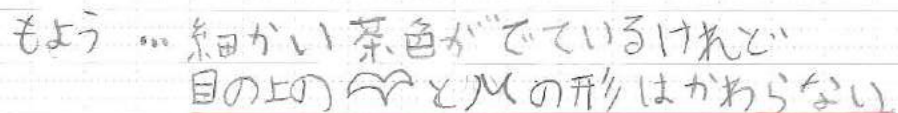 もよう … 細かい茶色がでているけれど
目の上の とМの形はかわらない